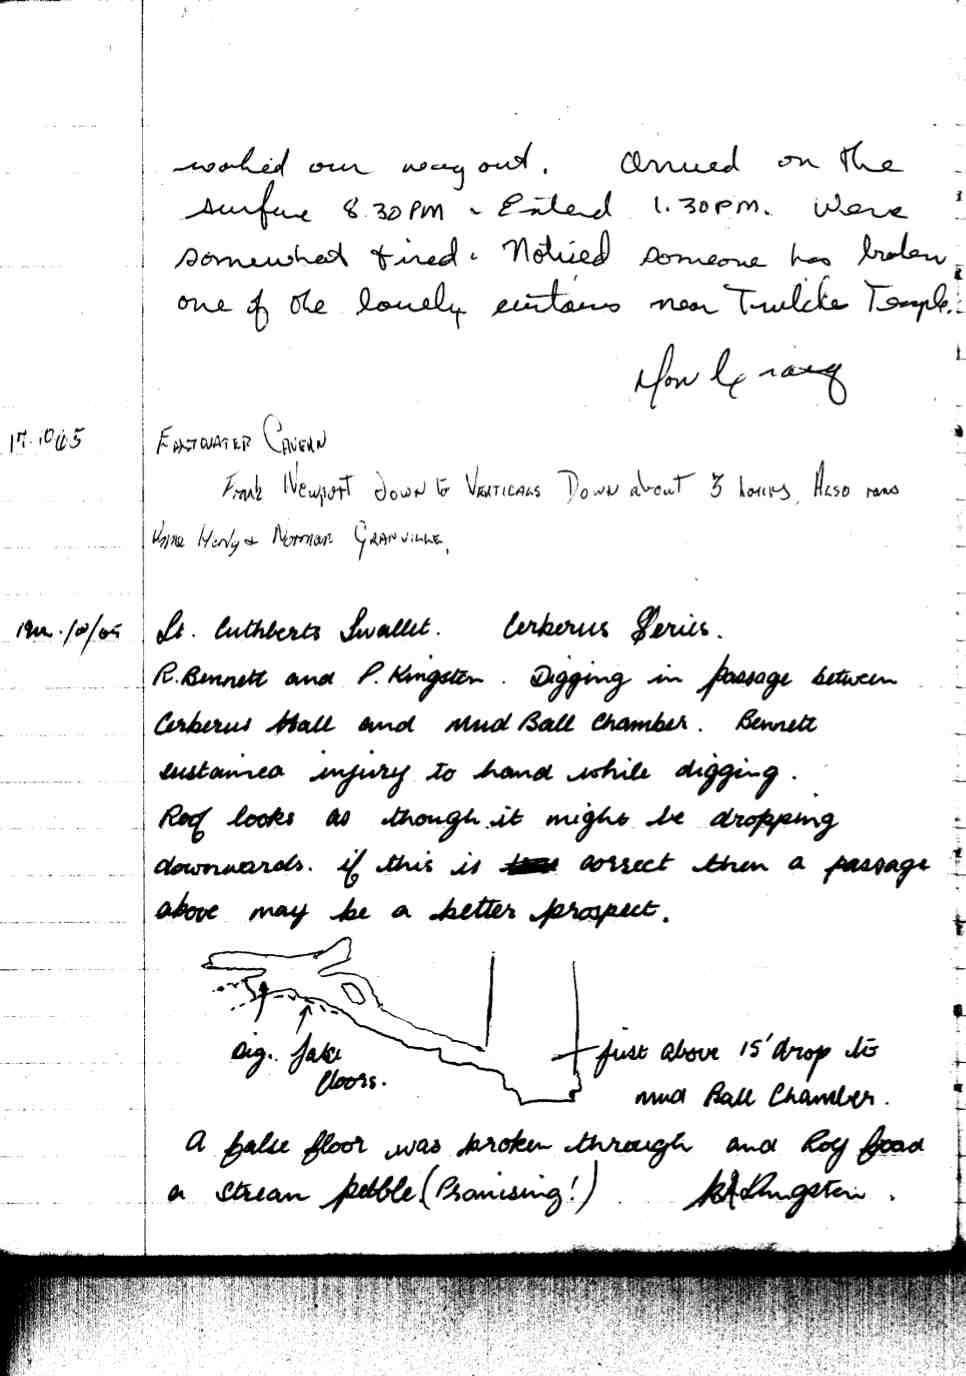 worked our way out. Arrived on the
surface 8.30 PM - Entered 1.30 PM. Were
somewhat tired. Noticed someone has broken
one of the lovely curtains near Temple.
17.10.65 EASTWATER CAVERN
Frank Newport down to VERTICALS Down about 3 hours, ALSO
& Norman GRANVILLE.
St. Cuthberts Swallet. Cerberus Series.
R. Bennett and P. Kingston. Digging in passage between
Cerberus Hall and Mud Ball Chamber. Bennett
sustained injury to hand while digging.
Roof looks as though it might be dropping
downwards. if this is correct then a passage
above may be a better prospect.
Dig. false
floors.
just above 15' drop to
Mud Ball Chamber.
A false floor was broken through and Roy
a stream pebble (Promising!) Kingston.